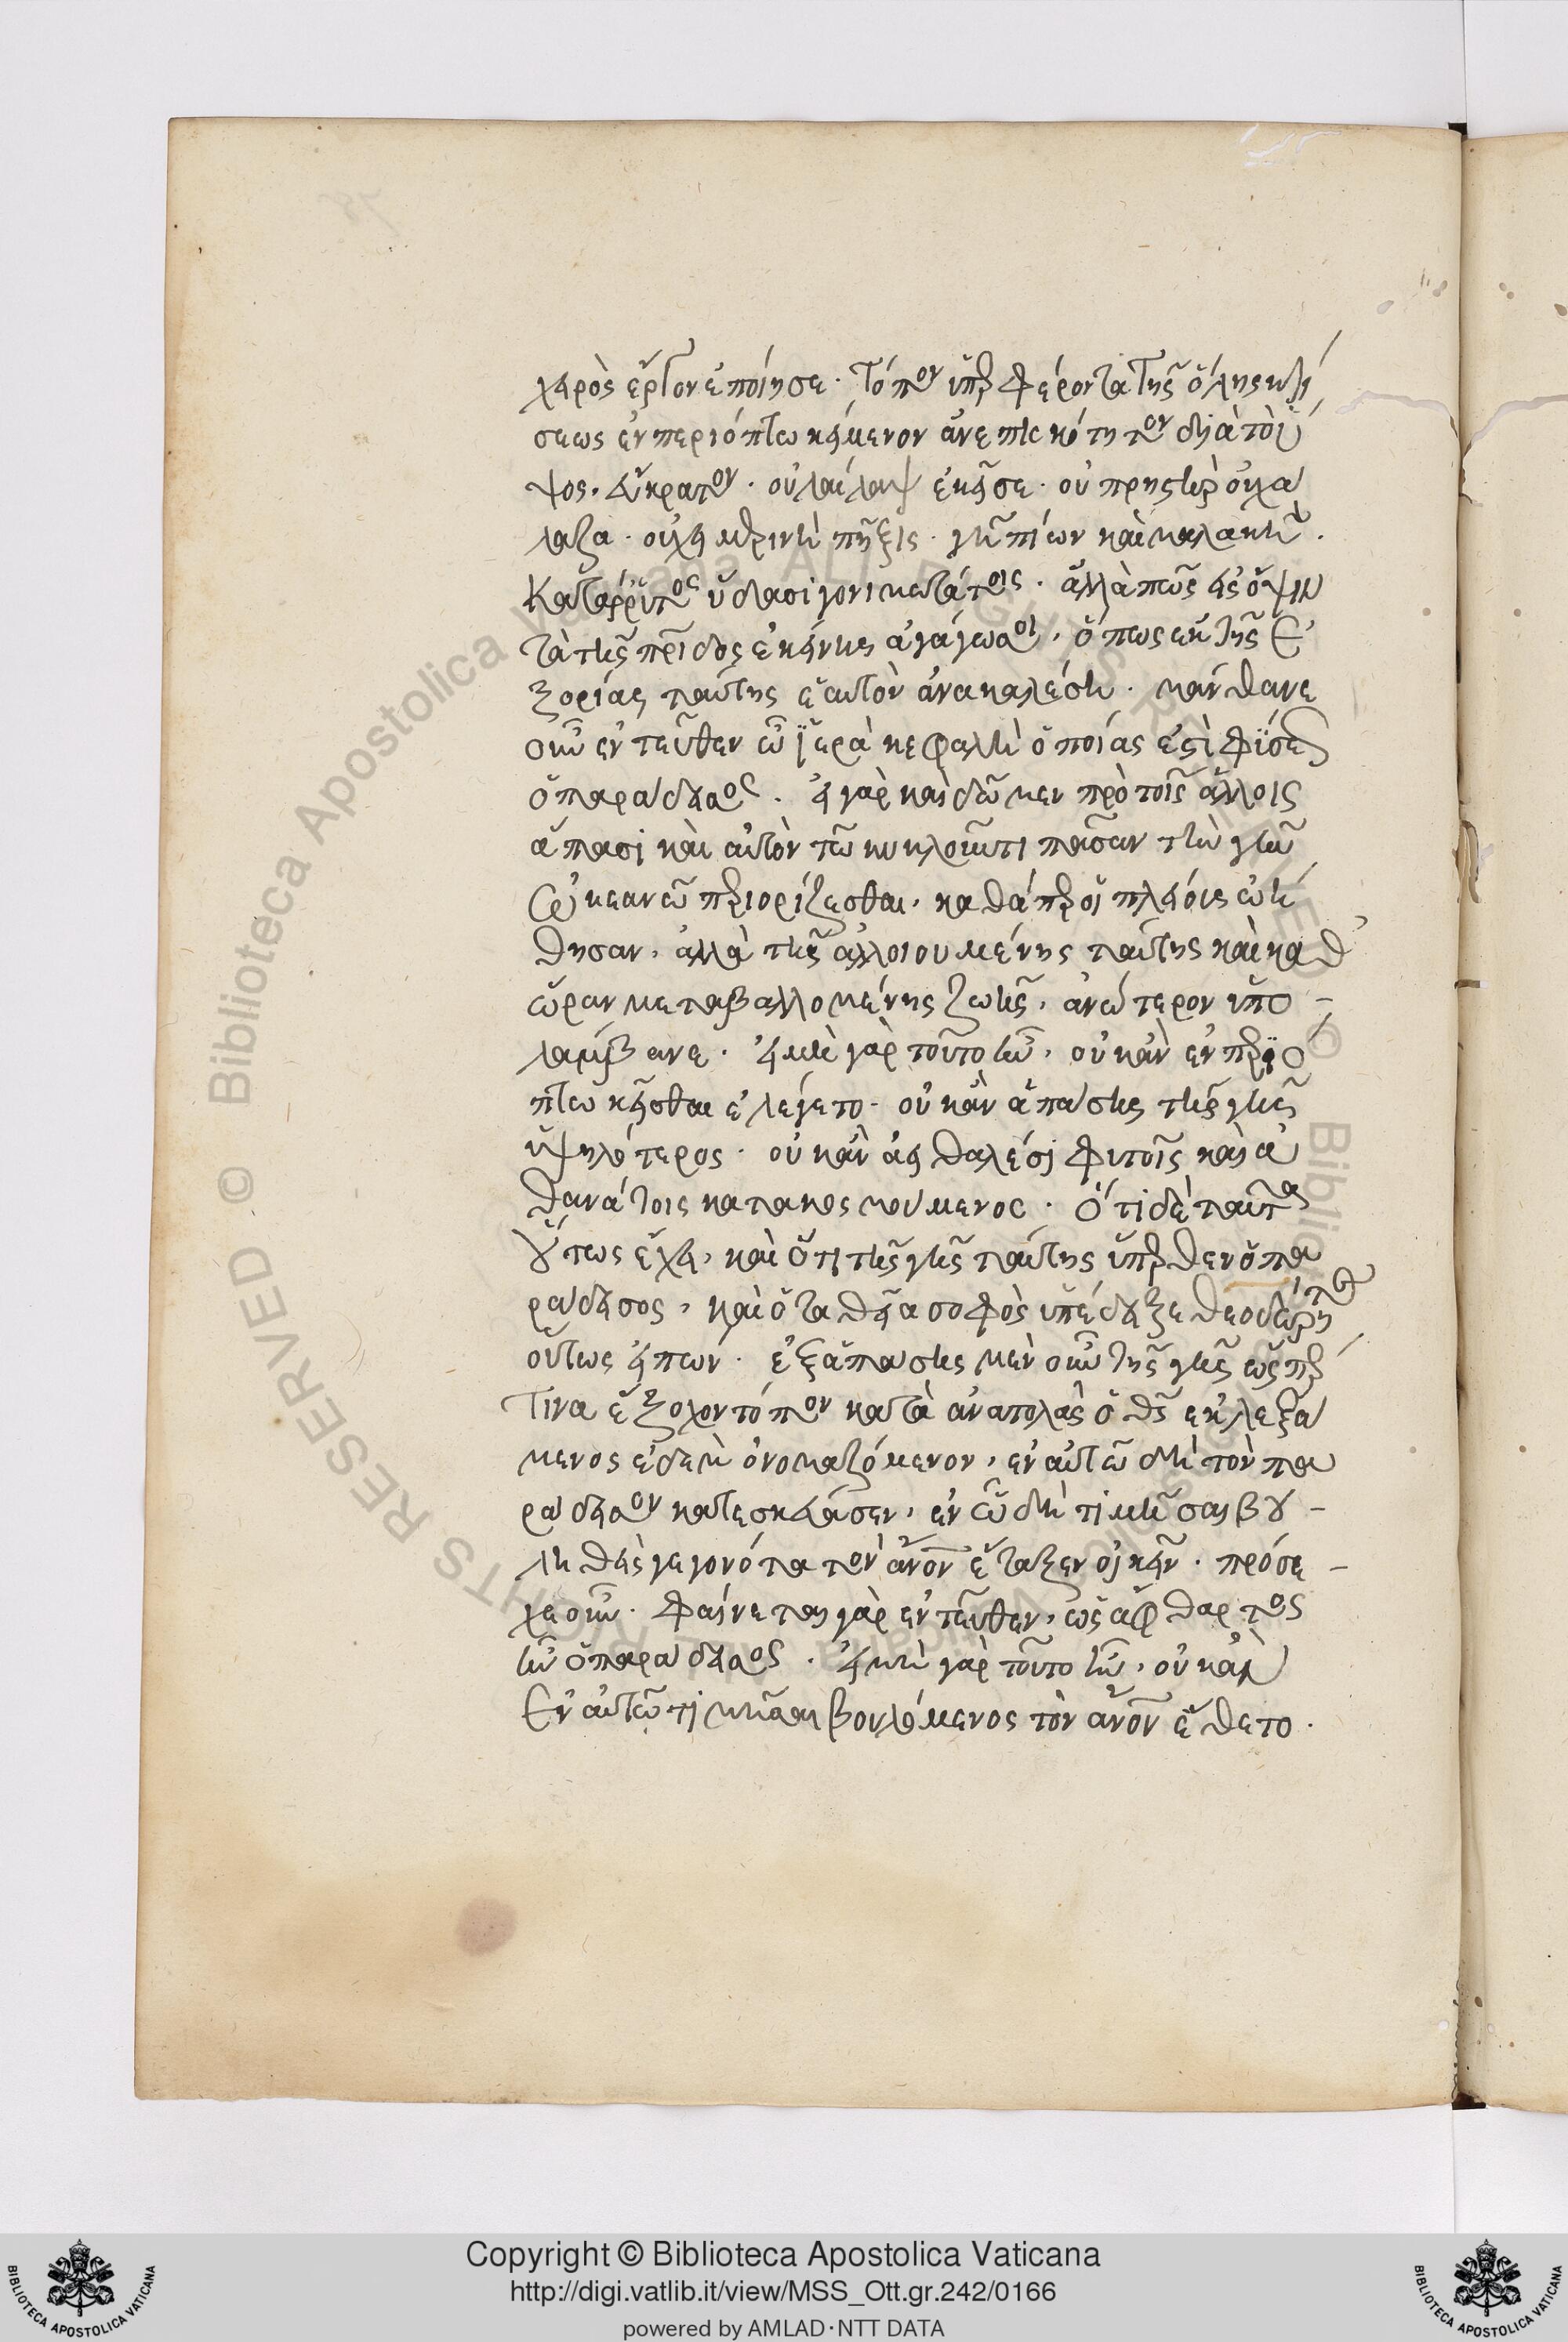 χειρὸς ἔργον ἐποίησε. τόπον ὑπερφέροντα τῆς ὅλης κτί
σεως ἐν περιόπτω κείμενον ἀνεπισκότητον διὰ τὸ ὕ
ψος. εὔκρατον. οὐ λαίλαψ ἐκεῖσε. οὐ πρηστὴρ οὐ χά
λαζα. οὐ χειμερινὴ πῆξις. γῆ πίων καὶ μαλακὴ.
κατάρρυτος ὕδασι γονιμωτάτοις. ἀλλὰ πῶς εἰς ὄψιν
τὰ τῆς πρίδος ἐκείνης ἀγάγωσι, ὅπως ἐκ τῆς ἐ
ξορίας ταύτης ἑαυτὸν ἀνακαλέση. μάνθανε
οὖν ἐντεῦθεν ὦ ἱερὰ κεφαλὴ ὁποίας ἐστὶ φύσεως
ὁ παράδεισος. εἰ γὰρ καὶ δῶμεν πρὸ τοῖς ἄλλοις
ἅπασι καὶ αὐτὸν τῶ κυκλοῦντι πᾶσαν τὴν γῆν
ὠκεανῶ περιορίζεσθαι, καθάπερ οἱ πλείους ὠή
θησαν, ἀλλὰ τῆς ἀλλοιουμένης ταύτης καὶ καθ
ὥραν μεταβαλλομένης ζωῆς, ἀνώτερον ὑπο -
λάμβανε. εἰ μὴ γὰρ τοῦτο ἦν, οὐκ ἂν ἐν περιό
πτω κεῖσθαι ἐλέγετο. οὐκ ἂν ἁπάσης τῆς γῆς
ὑψηλότερος. οὐκ ἂν ἀειθαλέσι φυτοῖς καὶ ἀ
θανάτοις κατακοσμούμενος. ὅτι δὲ ταῦτα
οὕτως ἔχει, καὶ ὅτι τῆς γῆς ταύτης ὕπερθεν ὁ πα
ράδεισος, καὶ ὁ τὰ θεῖα σοφὸς ὑπέδειξε θεοδώρητος
οὕτως εἰπών. ἐξ ἁπάσης μὲν οὖν τῆς γῆς ὥσπερ
τινα ἔξοχον τόπον κατὰ ἀνατολὰς ὁ θς ἐκλεξά
μενος ἐδεμ ὀνομαζόμενον, ἐν αὐτῶ δὴ τὸν πα
ράδεισον κατεσκεύασεν, ἐν ὧ δὴ τιμῆσαι βου -
ληθεὶς γεγονότα τὸν ἄνον ἔταξεν οἰκεῖν. πρόσε -
χε οὖν. φαίνεται γὰρ ἐντεῦθεν, ὡς ἄφθαρτος
ἦν ὁ παράδεισος. εἰ μὴ γὰρ τοῦτο ἦν, οὐκ ἂν
ἐν αὐτῶ τιμῆσαι βουλόμενος τὸν ἄνον ἔθετο.
Copyright © Biblioteca Apostolica Vaticana
http://digi.vatlib.it/view/MSS_Ott.gr.242/0166
powered by AMLAD·NTT DATA